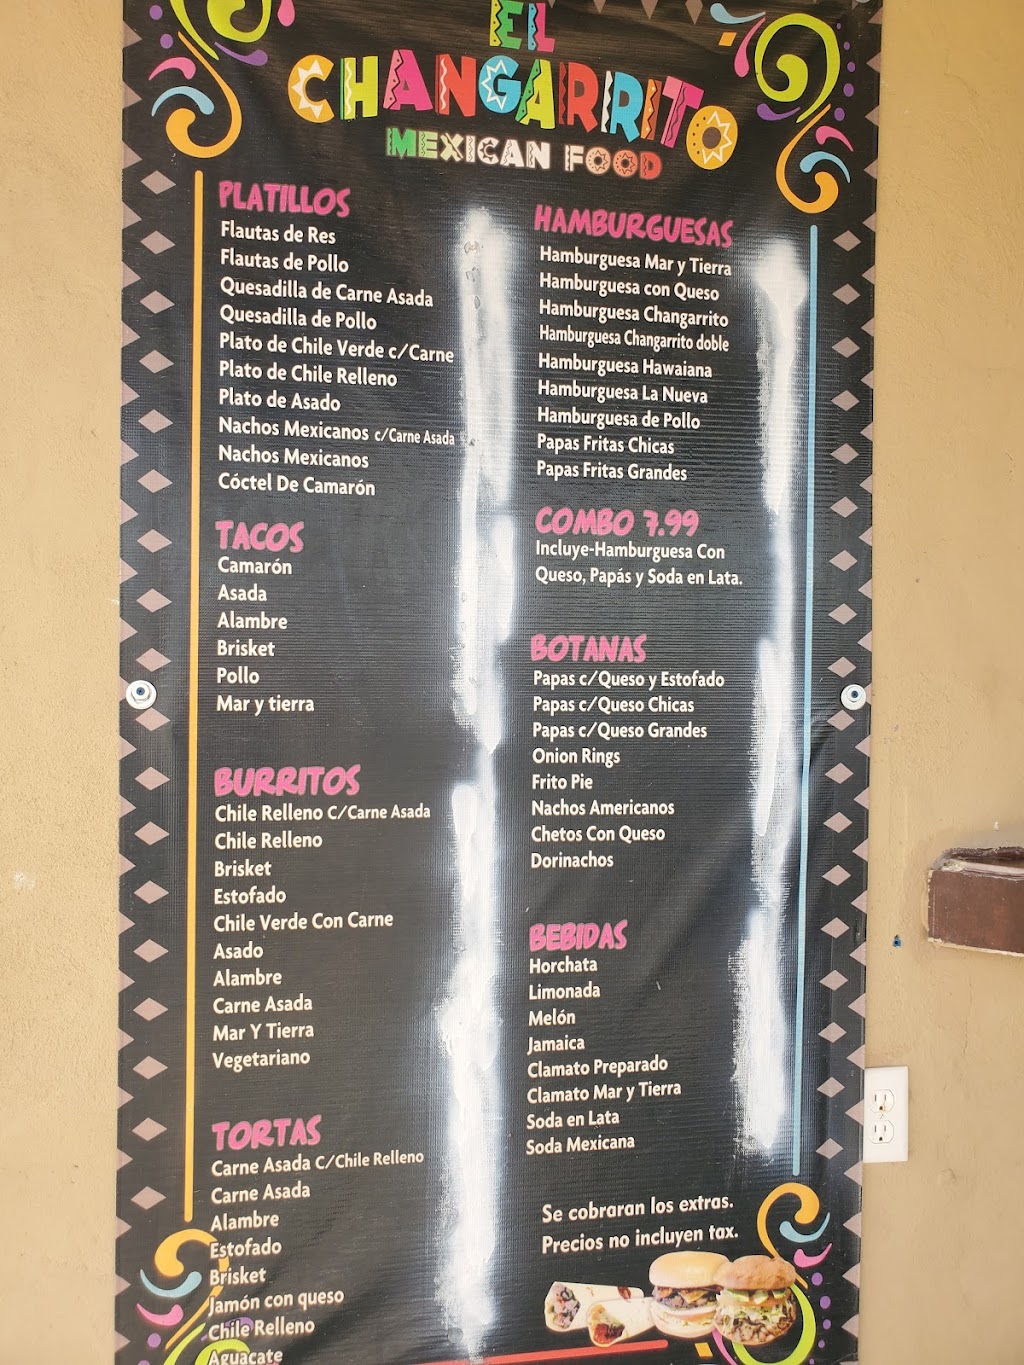 EL
CHANGARRITO
MEXICAN FOOD
PLATILLOS
Flautas de Res
Flautas de Pollo
Quesadilla de Carne Asada
Quesadilla de Pollo
Plato de Chile Verde c/Carne
Plato de Chile Relleno
Plato de Asado
Nachos Mexicanos c/Carne Asada
Nachos Mexicanos
Cóctel De Camarón
TACOS
Camarón
Asada
Alambre
Brisket
Pollo
Mar y tierra
BURRITOS
Chile Relleno C/Carne Asada
Chile Relleno
Brisket
Estofado
Chile Verde Con Carne
Asado
Alambre
Carne Asada
Mar Y Tierra
Vegetariano
TORTAS
Carne Asada C/Chile Relleno
Carne Asada
Alambre
Estofado
Brisket
Jamón con queso
Chile Relleno
Aguacate
HAMBURGUESAS
Hamburguesa Mar y Tierra
Hamburguesa con Queso
Hamburguesa Changarrito
Hamburguesa Changarrito doble
Hamburguesa Hawaiana
Hamburguesa La Nueva
Hamburguesa de Pollo
Papas Fritas Chicas
Papas Fritas Grandes
COMBO 7.99
Incluye-Hamburguesa Con
Queso, Papás y Soda en Lata.
BOTANAS
Papas c/Queso y Estofado
Papas c/Queso Chicas
Papas c/Queso Grandes
Onion Rings
Frito Pie
Nachos Americanos
Chetos Con Queso
Dorinachos
BEBIDAS
Horchata
Limonada
Melón
Jamaica
Clamato Preparado
Clamato Mar y Tierra
Soda en Lata
Soda Mexicana
Se cobraran los extras.
Precios no incluyen tax.